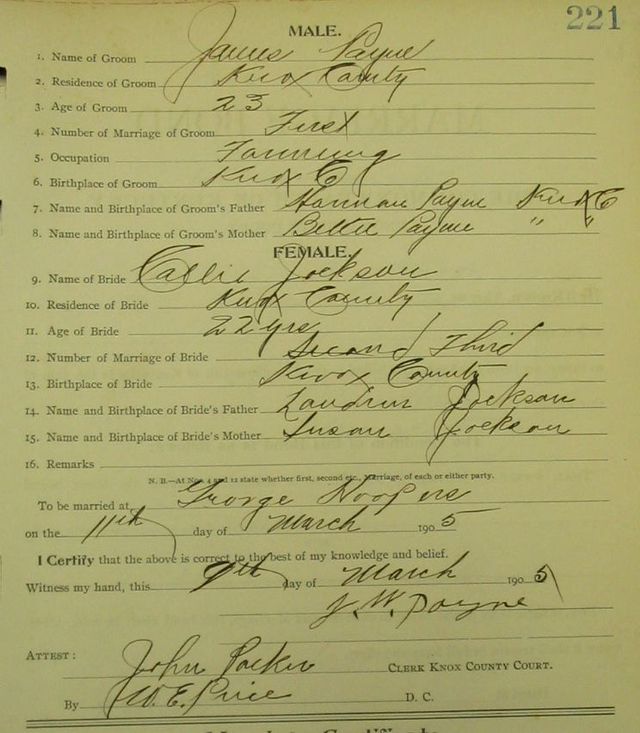 221
MALE.
1. Name of Groom James Payne
2. Residence of Groom Knox County
3. Age of Groom 23
4. Number of Marriage of Groom First
5. Occupation Farming
6. Birthplace of Groom Knox C
7. Name and Birthplace of Groom's Father Harman Payne Knox C
8. Name and Birthplace of Groom's Mother Bettie Payne " "
FEMALE.
9. Name of Bride Callie Jackson
10. Residence of Bride Knox County
11. Age of Bride 22 yrs
12. Number of Marriage of Bride Second Third
13. Birthplace of Bride Knox County
14. Name and Birthplace of Bride's Father Jackson
15. Name and Birthplace of Bride's Mother Susan Jackson
16. Remarks
N. B.—At Nos. 4 and 12 state whether first, second etc., Marriage, of each or either party.
To be married at George Hoopers
on the 11th day of March 1905
I Certify that the above is correct to the best of my knowledge and belief.
Witness my hand, this 9th day of March 1905
J. W. Payne
ATTEST: John Parker CLERK KNOX COUNTY COURT.
By W. E. Price D. C.